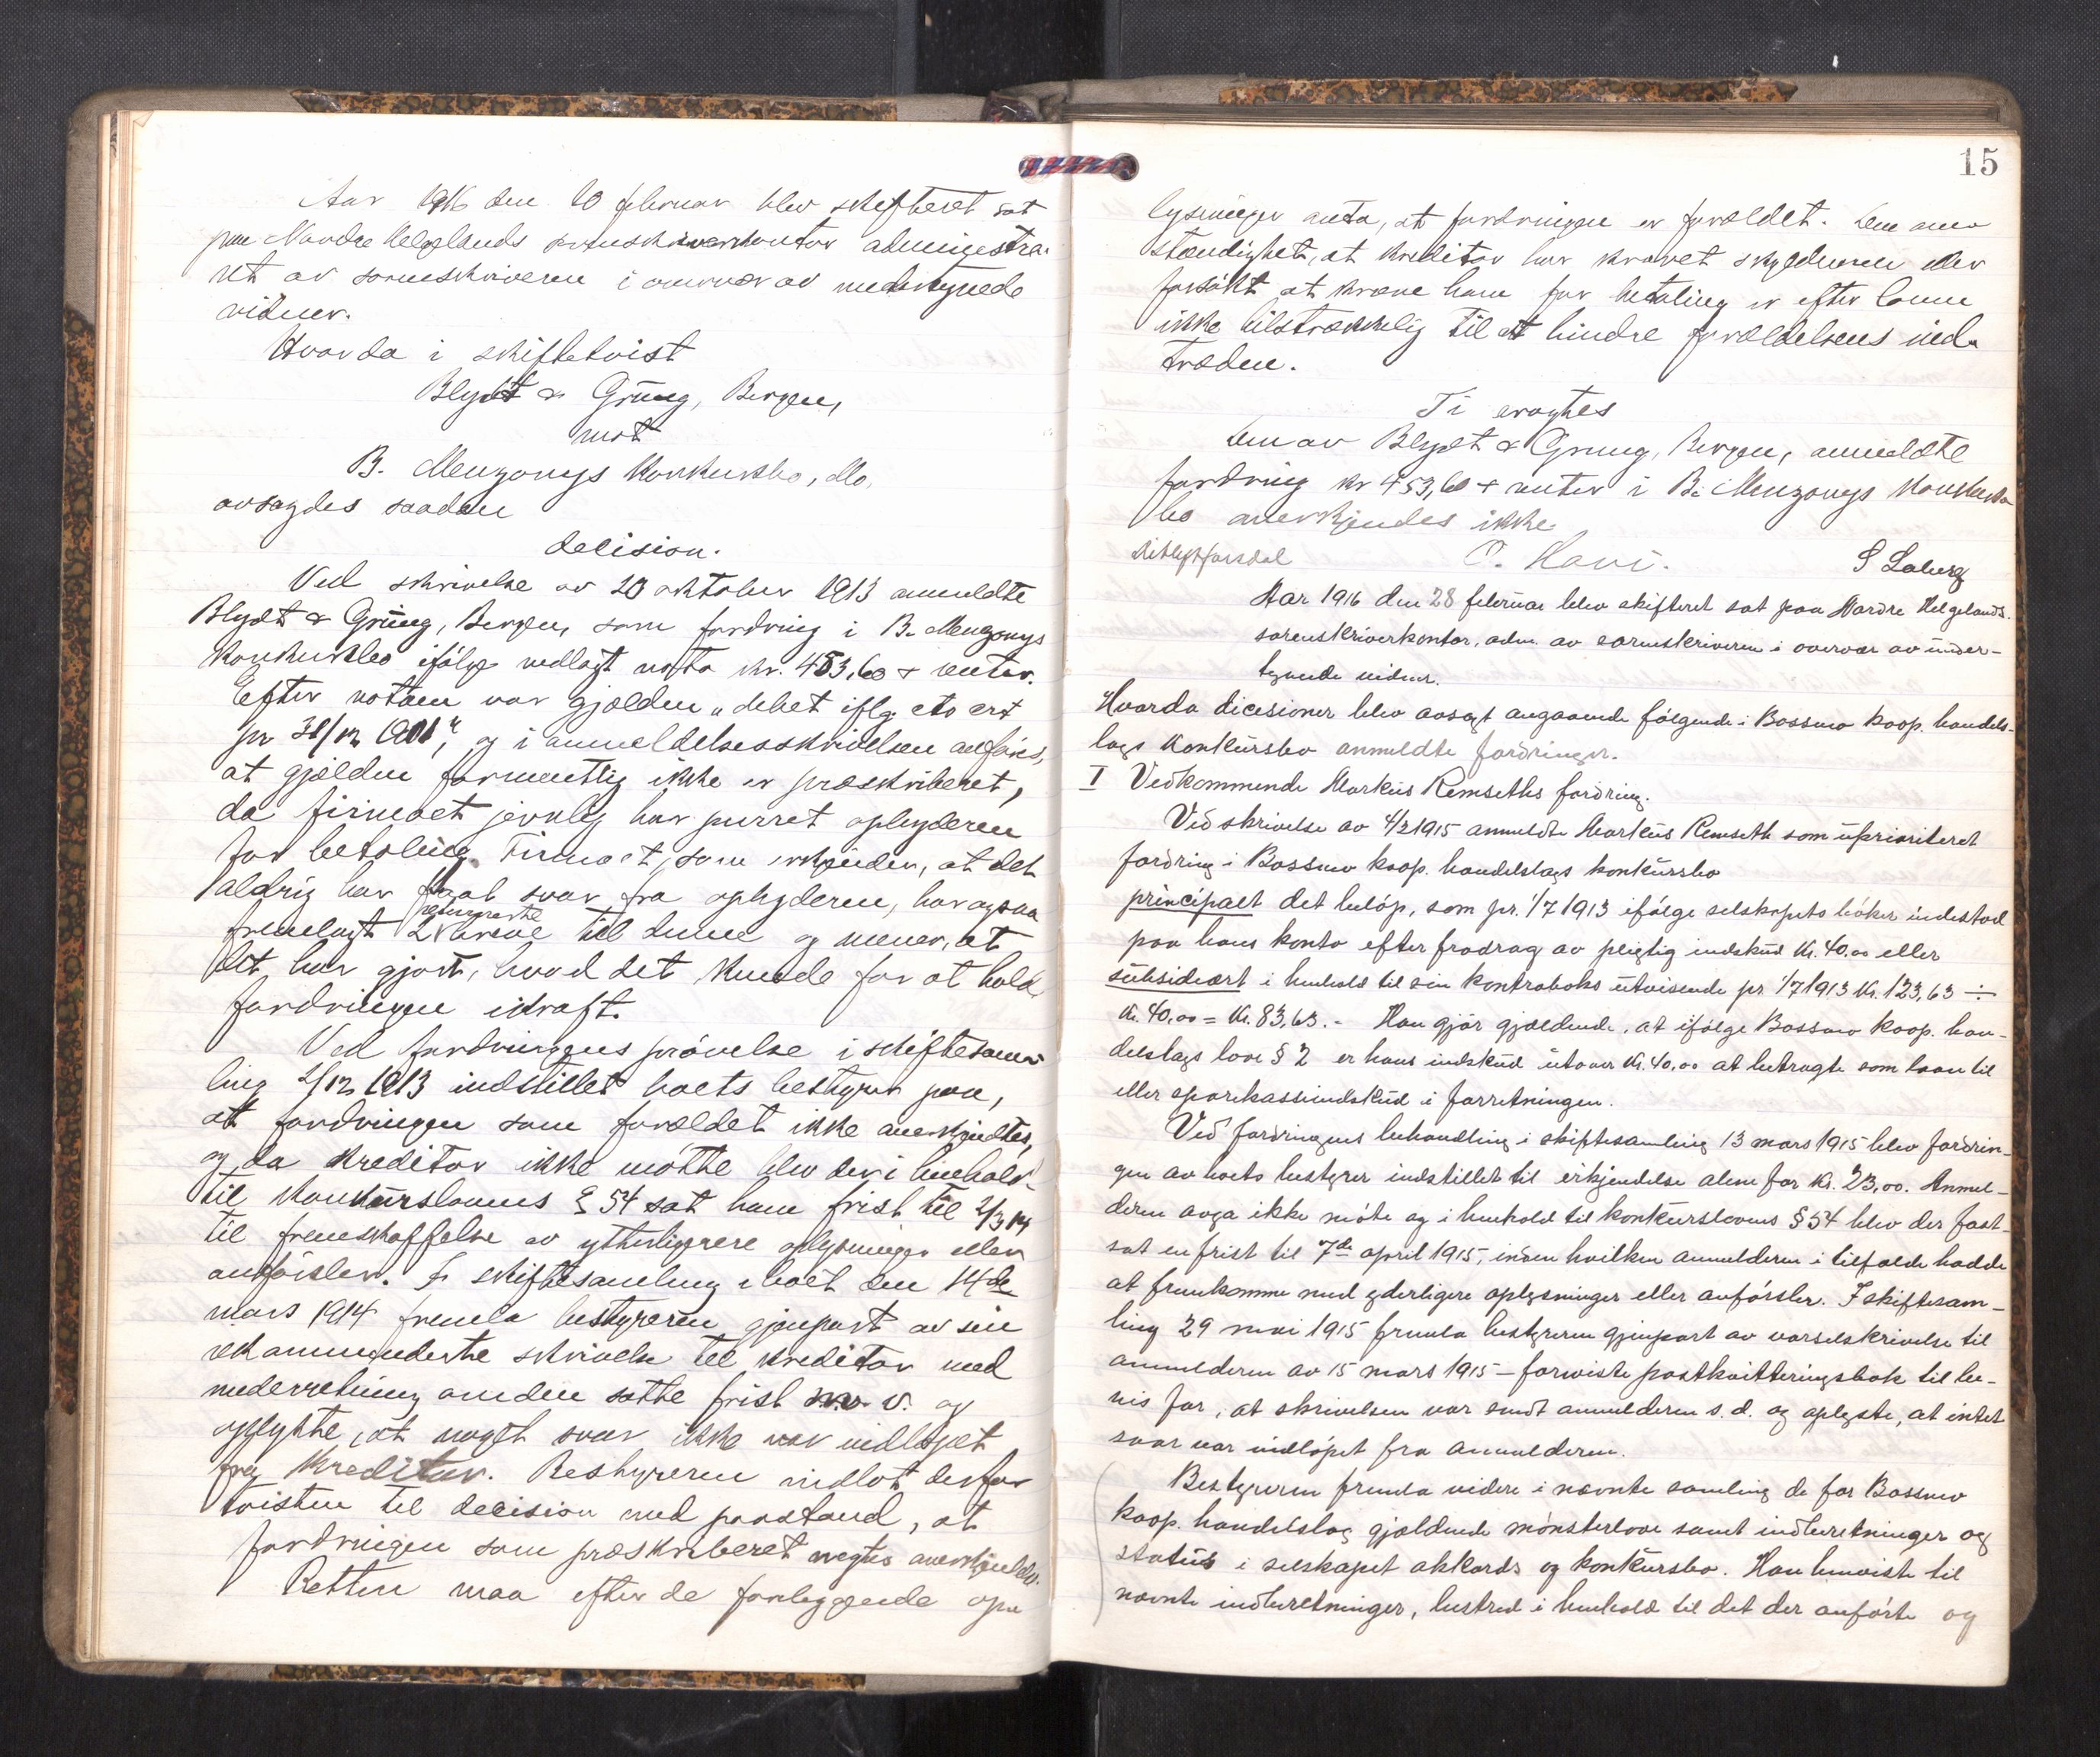 Aar 1916 den 10 februar blev skifteret sat
paa Nordre Helgelands sorenskriverkontor administre-
ret av sorenskriveren i overvær av undertegnede
vidner.
Hvorda i skiftetvist
Blydt & Grung, Bergen,
mot
B. Menzonys Konkursbo, Mo,
avsagdes saadan
decision.
Ved skrivelse av 20 oktober 1913 anmeldte
Blydt & Grung, Bergen, som fordring i B. Menzonys
Konkursbo ifølge vedlagt nota kr. 453,60 + renter.
Efter notaen var gjælden "debet iflg. cto crt
pr 31/12 1901", og i anmeldelsesskrivelsen anføres,
at gjælden formentlig ikke er præskriberet,
da firmaet jevnlig har purret opbyderen
for betaling. Firmaet, som erkjender, at det
aldrig har faat svar fra opbyderen, har ogsaa
fremlagt 2 returnerte breve til denne og mener, at
det har gjort, hvad det kunde for at holde
fordringen ikraft.
Ved fordringens prøvelse i skiftesam-
ling 2/12 1913 indstillet boets bestyrer paa,
at fordringen som forældet ikke anerkjendtes,
og da kreditor ikke møtte blev der i henhold
til Konkurslovens § 54 sat ham frist til 2/3 14
til fremskaffelse av ytterligere oplysninger eller
anførsler. I skiftesamling i boet den 14de
mars 1914 fremla bestyreren gjenpart av sin
rekommenderte skrivelse til kreditor med
underretning om den satte frist m. v. og
oplyste, at noget svar ikke var indløpet
fra Kreditor. Bestyreren indlot derfor
tvisten til decision med paastand, at
fordringen som præskriberet negtes anerkjendelse.
Retten maa efter de foreliggende op-
15
lysninger anta, at fordringen er forældet. Den om-
stændighet, at kreditor har krævet skyldneren eller
forsøkt at kræve ham for betaling er efter loven
ikke tilstrækkelig til at hindre forældelsens ind-
træden.
Ti eragtes
Den av Blydt & Grung, Bergen, anmeldte
fordring kr 453,60 + renter i B. Menzonys Konkurs-
bo anerkjendes ikke
O. Havi.
S Laberg
Aar 1916 den 28 februar blev skifteret sat paa Nordre Helgelands
sorenskriverkontor, adm. av sorenskriveren i overvær av under-
tegnede vidner.
Hvorda dicesioner blev avsagt angaaende følgende i Bossmo koop. handels-
lags konkursbo anmeldte fordringer.
I Vedkommende Markus Remseths fordring.
Ved skrivelse av 4/2 1915 anmeldte Markus Remseth som uprioriteret
fordring i Bossmo koop. handelslags konkursbo
principalt det beløp, som pr. 1/7 1913 ifølge selskapets bøker indestod
paa hans konto efter fradrag av pligtig indskud kr. 40.00 eller
subsidiært i henhold til sin kontrabok utvisende pr 1/7 1913 kr. 123,63 ÷
kr. 40,00 = kr. 83,63. - Han gjør gjældende, at ifølge Bossmo koop. han-
delslags love § 2 er hans indskud utover kr. 40,00 at betragte som laan til
eller sparekasseindskud i forretningen.
Ved fordringens behandling i skiftesamling 13 mars 1915 blev fordrin-
gen av boets bestyrer indstillet til erkjendelse alene for kr. 23,00. Anmel-
deren avga ikke møte og i henhold til konkurslovens § 54 blev der fast-
sat en frist til 7de april 1915, inden hvilken anmelderen i tilfælde hadde
at fremkomme med yderligere oplysninger eller anførsler. I skiftesam-
ling 29 mai 1915 fremla bestyreren gjenpart av varselskrivelse til
anmelderen av 15 mars 1915 - forviste postkvitteringsbok til be-
vis for, at skrivelsen var sendt anmelderen s. d. og oplyste, at intet
svar var indløpet fra anmelderen.
Bestyreren fremla videre i nævnte samling de for Bossmo
koop. handelslag gjældende mønsterlove samt indberetninger og
status i selskapet akkords og konkursbo. Han henviste til
nævnte indberetninger, bestred i henhold til det der anførte og